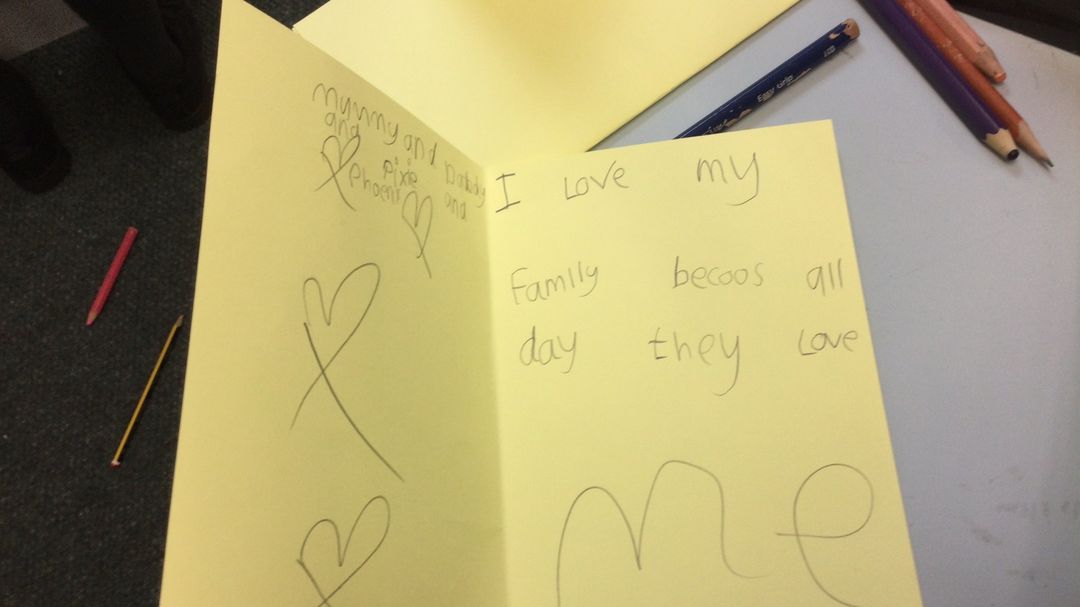 mummy and Daddy
and
Pixie and
Phoeni
I Love my
Family becoos all
day they Love
me
Easy Grip